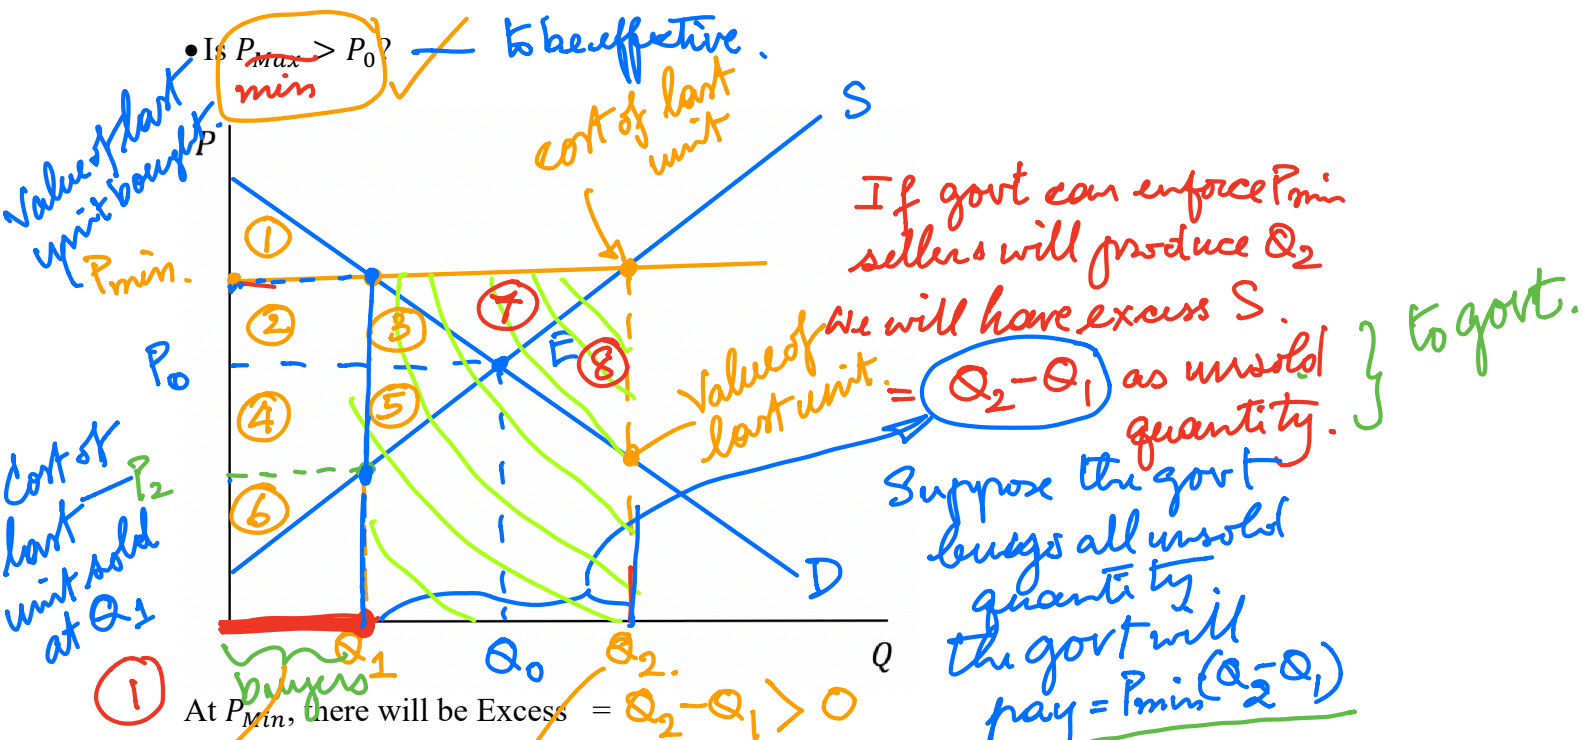 • Is P_Max > P_0?
min
to be effective.
Value of last
unit bought.
P
cost of last
unit
S
Pmin.
1
2
3
4
5
6
7
8
P_0
E
Value of
last unit.
Cost of
last
unit sold
at Q_1
P_2
D
If govt can enforce Pmin
sellers will produce Q_2
We will have excess S.
= Q_2-Q_1 as unsold
quantity.
} to govt.
Suppose the govt
buys all unsold
quantity.
the govt will
pay = Pmin(Q_2-Q_1)
Q_1
Q_0
Q_2.
Q
buyers
1
At P_Min, there will be Excess = Q_2-Q_1 > 0